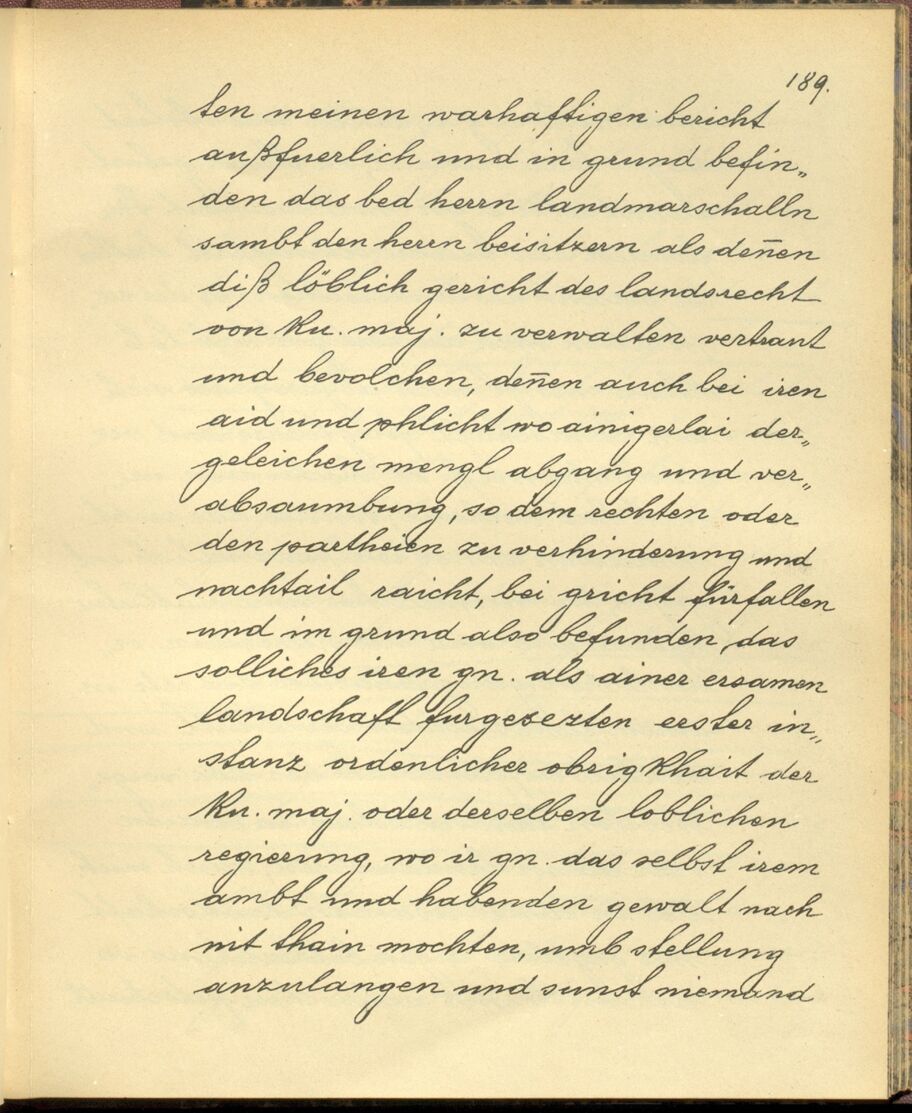 189.
ten meinen warhaftigen bericht
außfuerlich und in grund befin„
den das bed herrn landmarschalln
sambt den herrn beisitzern als den̄en
diß löblich gericht des landsrecht
von Ku. maj. zu verwalten vertraut
und bevolchen, den̄en auch bei iren
aid und phlicht wo ainigerlai der„
geleichen mengl abgang und ver„
absaumbung, so dem rechten oder
den partheien zu verhinderung und
nachtail raicht, bei gricht fürfallen
und im grund also befunden, das
solliches iren gn. als ainer ersamen
landschaft furgesezten erster in„
stanz ordenlicher obrigkhait der
Ku. maj. oder derselben loblichen
regierung, wo ir gn. das selbst irem
ambt und habenden gewalt nach
nit thain mochten, umb stellung
anzulangen und sunst niemand